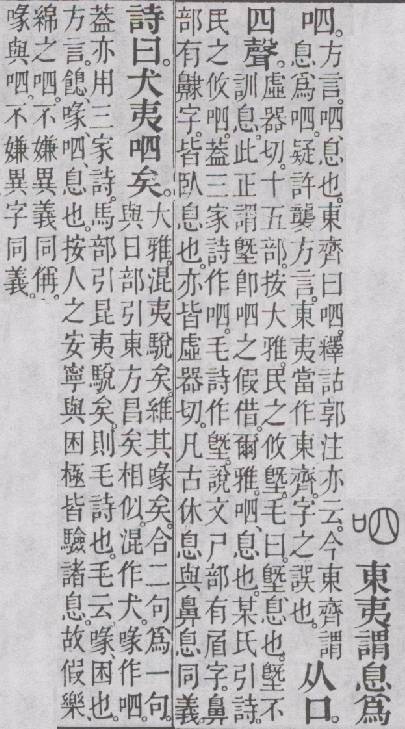 東夷謂息爲
呬。
方言。呬、息也。東齊曰呬。釋詁郭注亦云。今東齊謂
息爲呬。疑許襲方言。東夷當作東齊。字之誤也。
从口。
四聲。
虛器切。十五部。按大雅。民之攸墍。毛曰。墍、息也。墍不
訓息。此正謂墍卽呬之假借。爾雅。呬、息也。某氏引詩。
民之攸呬。葢三家詩作呬。毛詩作墍。說文尸部有㞒字。鼻
部有齂字。皆臥息也。亦皆虛器切。凡古休息與鼻息同義。
詩曰。犬夷呬矣。
大雅。混夷駾矣。維其喙矣。合二句爲一句。
與日部引東方昌矣相似。混作犬。喙作呬。
葢亦用三家詩。馬部引昆夷駾矣。則毛詩也。毛云。喙、困也。
方言。䬵、喙、呬、息也。按人之安寧與困極皆驗諸息。故假樂、
綿之呬。不嫌異義同偁。
喙與呬。不嫌異字同義。